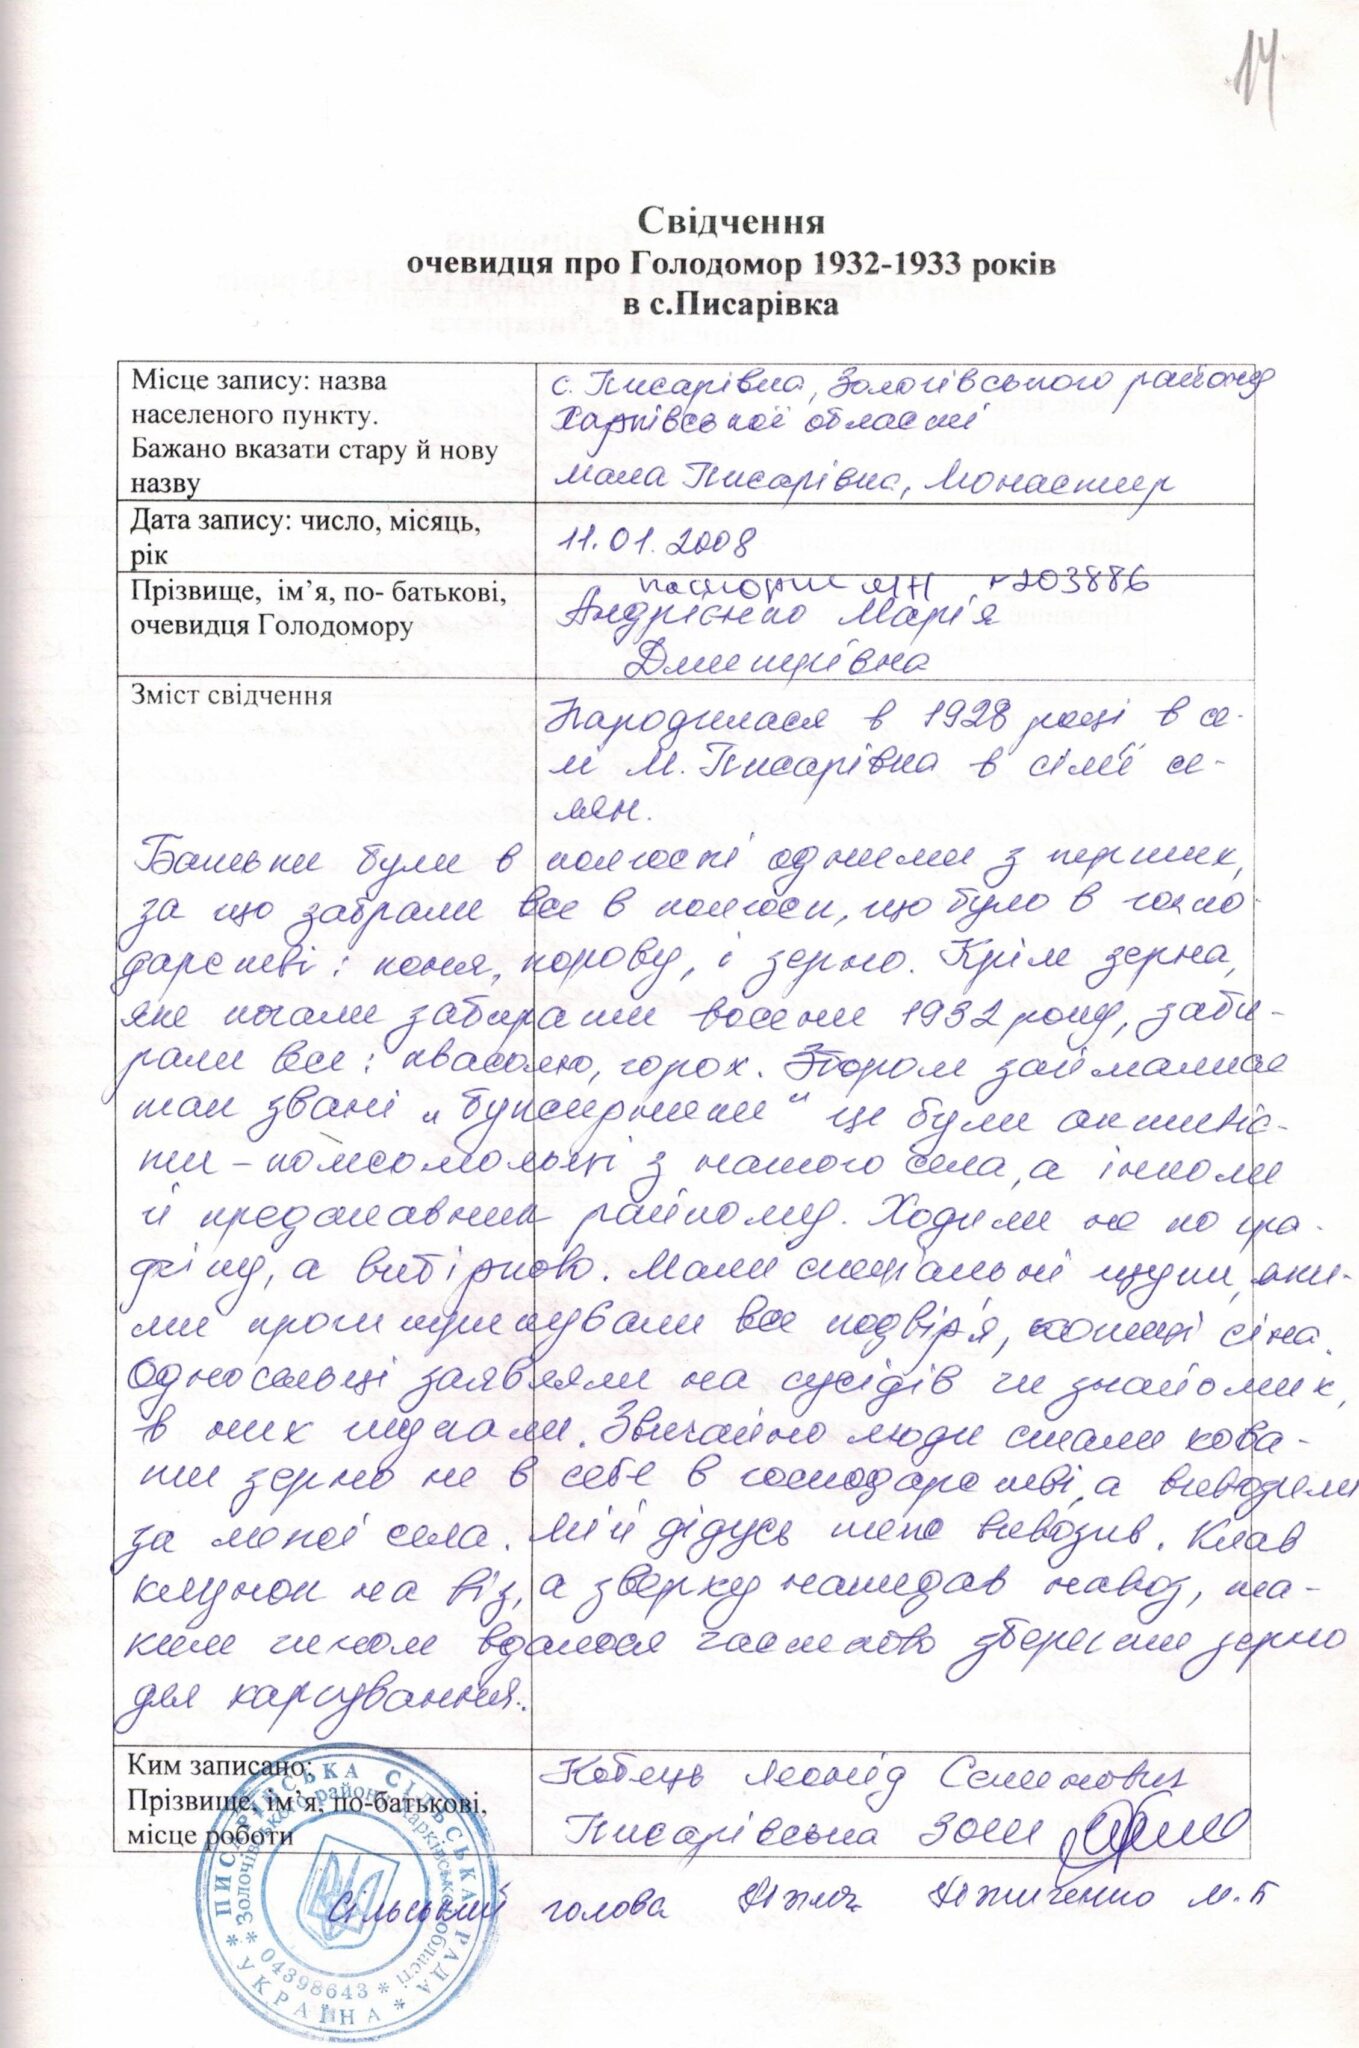 14
Свідчення
очевидця про Голодомор 1932-1933 років
в с.Писарівка
Місце запису: назва
населеного пункту.
Бажано вказати стару й нову
назву
с. Писарівка, Золочівського району
Харківської області
мала Писарівка, Монастир
Дата запису: число, місяць,
рік
11.01.2008
Прізвище, ім’я, по- батькові,
очевидця Голодомору
паспорт МН № 203886
Андрієнко Марія
Дмитрівна
Зміст свідчення
Народилася в 1928 році в се-
лі М. Писарівка в сім'ї се-
лян.
Батьки були в колгоспі одними з перших,
за що забрали все в колгосп, що було в госпо-
дарстві: коня, корову, і зерно. Крім зерна,
яке почали забирати восени 1932 року, заби-
рали все: квасолю, горох. Збором займалися
так звані „буксирники" це були активіс-
ти - комсомольці з нашого села, а інколи
й представники райкому. Ходили не по гра-
фіку, а вибірково. Мали спеціальні щупи, яки-
ми проштрикували все подвір'я, копиці сіна.
Односельці заявляли на сусідів чи знайомих,
в них шукали. Звичайно люди стали хова-
ти зерно не в себе в господарстві, а вивозили
за межі села. Мій дідусь теж вивозив. Клав
клунок на віз, а зверху накидав навоз, та-
ким чином вдалося частково зберегти зерно
для харчування.
Ким записано:
Прізвище, ім’я, по-батькові,
місце роботи
Кобець Леонід Семенович
Писарівська ЗОШ
Сільський голова М.Б
ПИСАРІВСЬКА СІЛЬСЬКА РАДА * УКРАЇНА *
Золочівського району Харківської області * 04398643 *